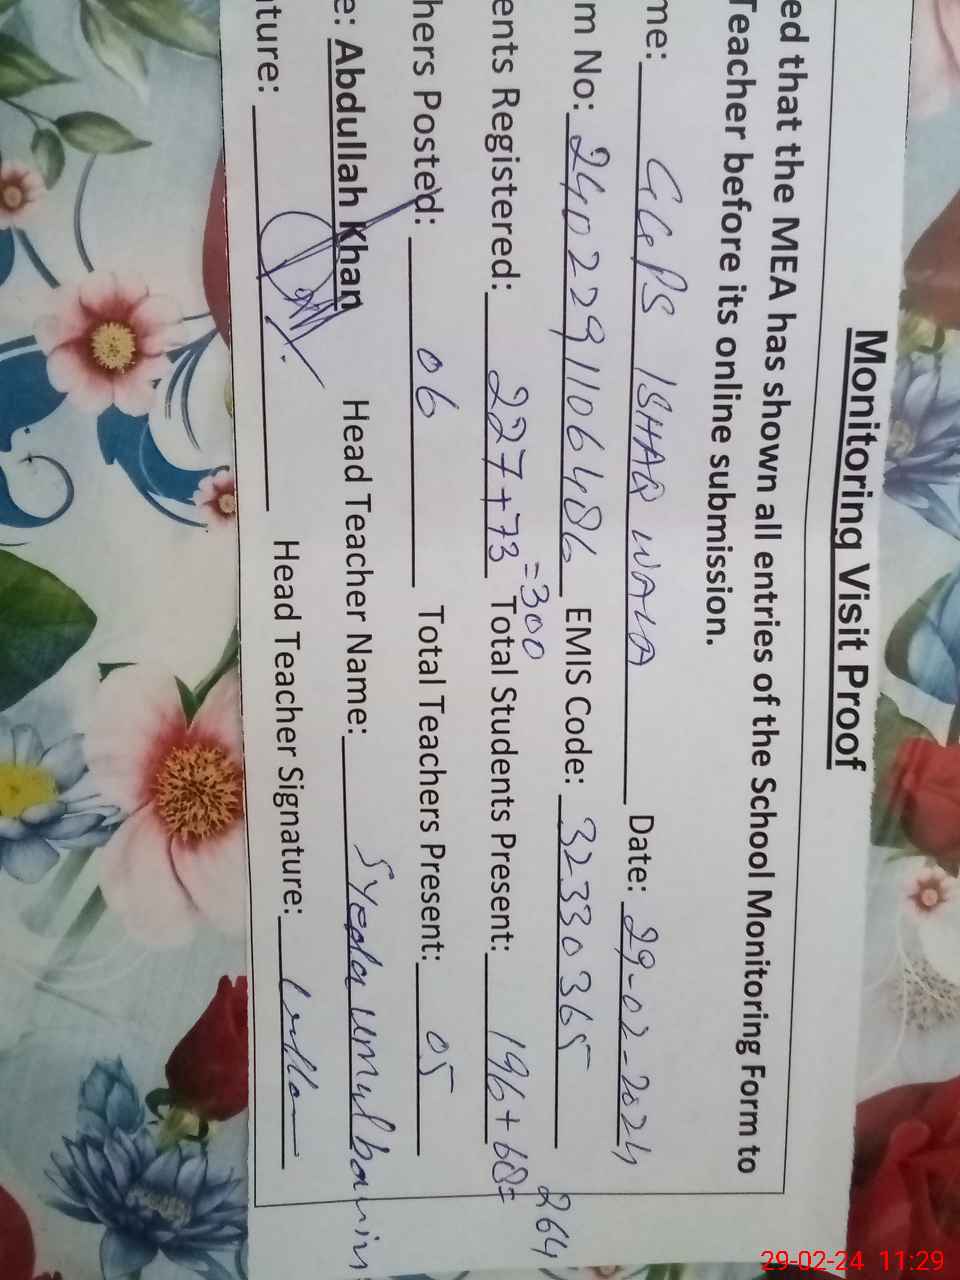 Monitoring Visit Proof
ed that the MEA has shown all entries of the School Monitoring Form to
Teacher before its online submission.
me: GGPS ISHAQ WALA Date: 29-02-2024
m No: 2402291106486 EMIS Code: 32330365
ents Registered: 227+73 =300 Total Students Present: 196+68= 264
hers Posted: 06 Total Teachers Present: 05
e: Abdullah Khan Head Teacher Name: Syeda Umulbanin
ture: Head Teacher Signature:
29-02-24 11:29